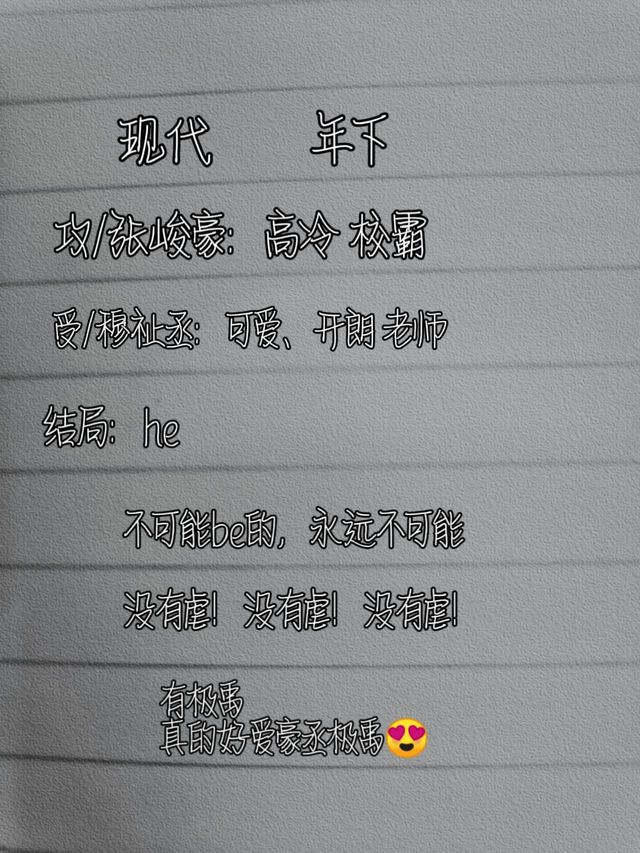 现代 年下
攻/张峻豪：高冷 校霸
受/穆祉丞：可爱、开朗 老师
结局：he
不可能be的，永远不可能
没有虐！没有虐！没有虐！
有极禹
真的好爱豪丞极禹😍